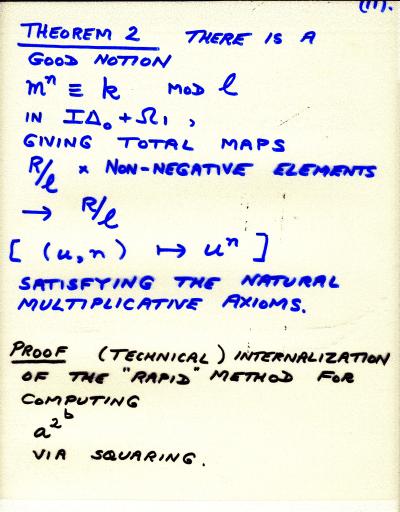 (11).
THEOREM 2 THERE IS A
GOOD NOTION
mⁿ ≡ k MOD l
IN IΔ₀ + Ω₁,
GIVING TOTAL MAPS
R/l × NON-NEGATIVE ELEMENTS
→ R/l
[ (u,n) ↦ uⁿ ]
SATISFYING THE NATURAL
MULTIPLICATIVE AXIOMS.
PROOF (TECHNICAL) INTERNALIZATION
OF THE "RAPID" METHOD FOR
COMPUTING
a^2^b
VIA SQUARING.